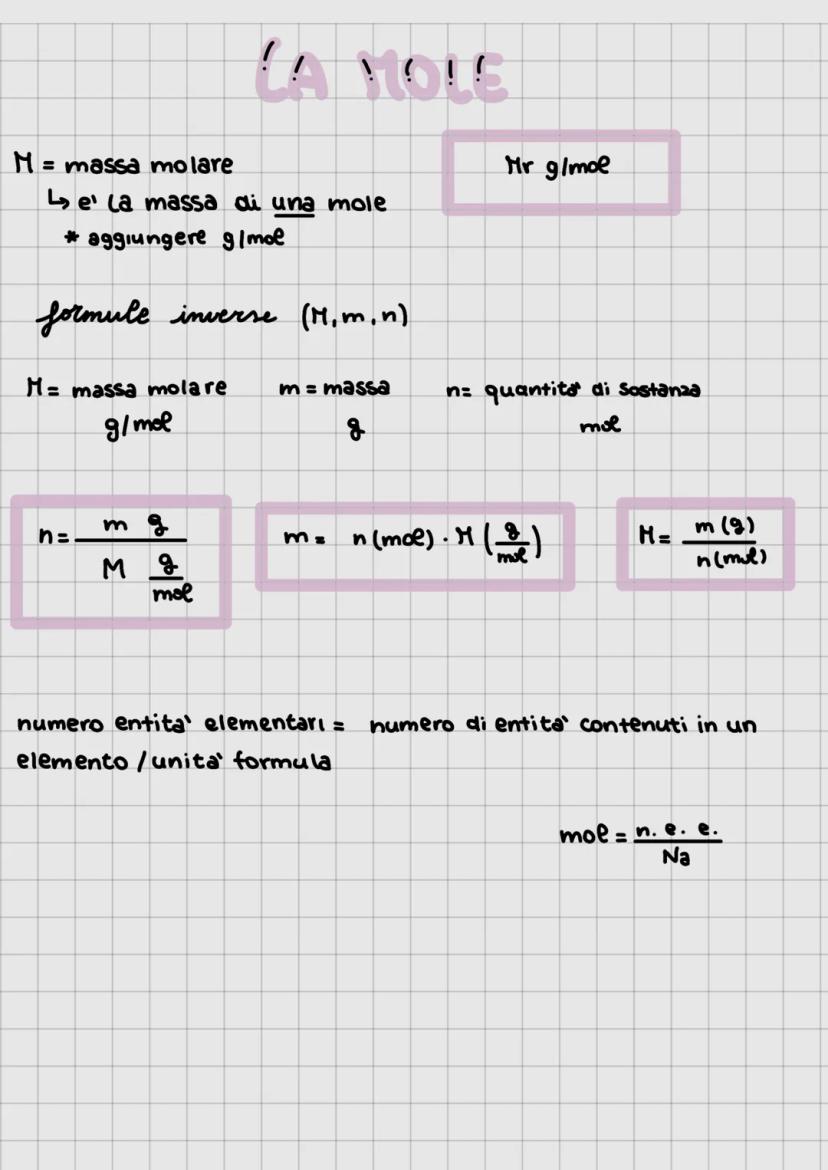 LA MOLE
M = massa molare
↳ e' la massa di una mole
* aggiungere g/mol
Mr g/mol
formule inverse (M, m, n)
M = massa molare
g/mol
m = massa
g
n = quantita' di sostanza
mol
n = m g / M g/mol
m = n (mol) · M (g/mol)
M = m (g) / n (mol)
numero entita' elementari = numero di entita' contenuti in un
elemento / unita' formula
mol = n. e. e. / Na